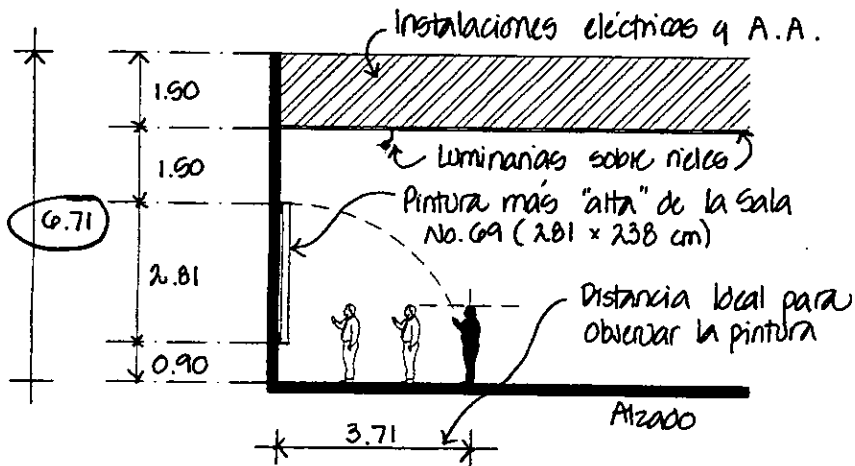 Instalaciones eléctricas y A.A.
1.50
1.50
Luminarias sobre rieles
Pintura más "alta" de la Sala
No. 69 (281 x 238 cm)
6.71
2.81
Distancia ideal para
observar la pintura
0.90
Alzado
3.71